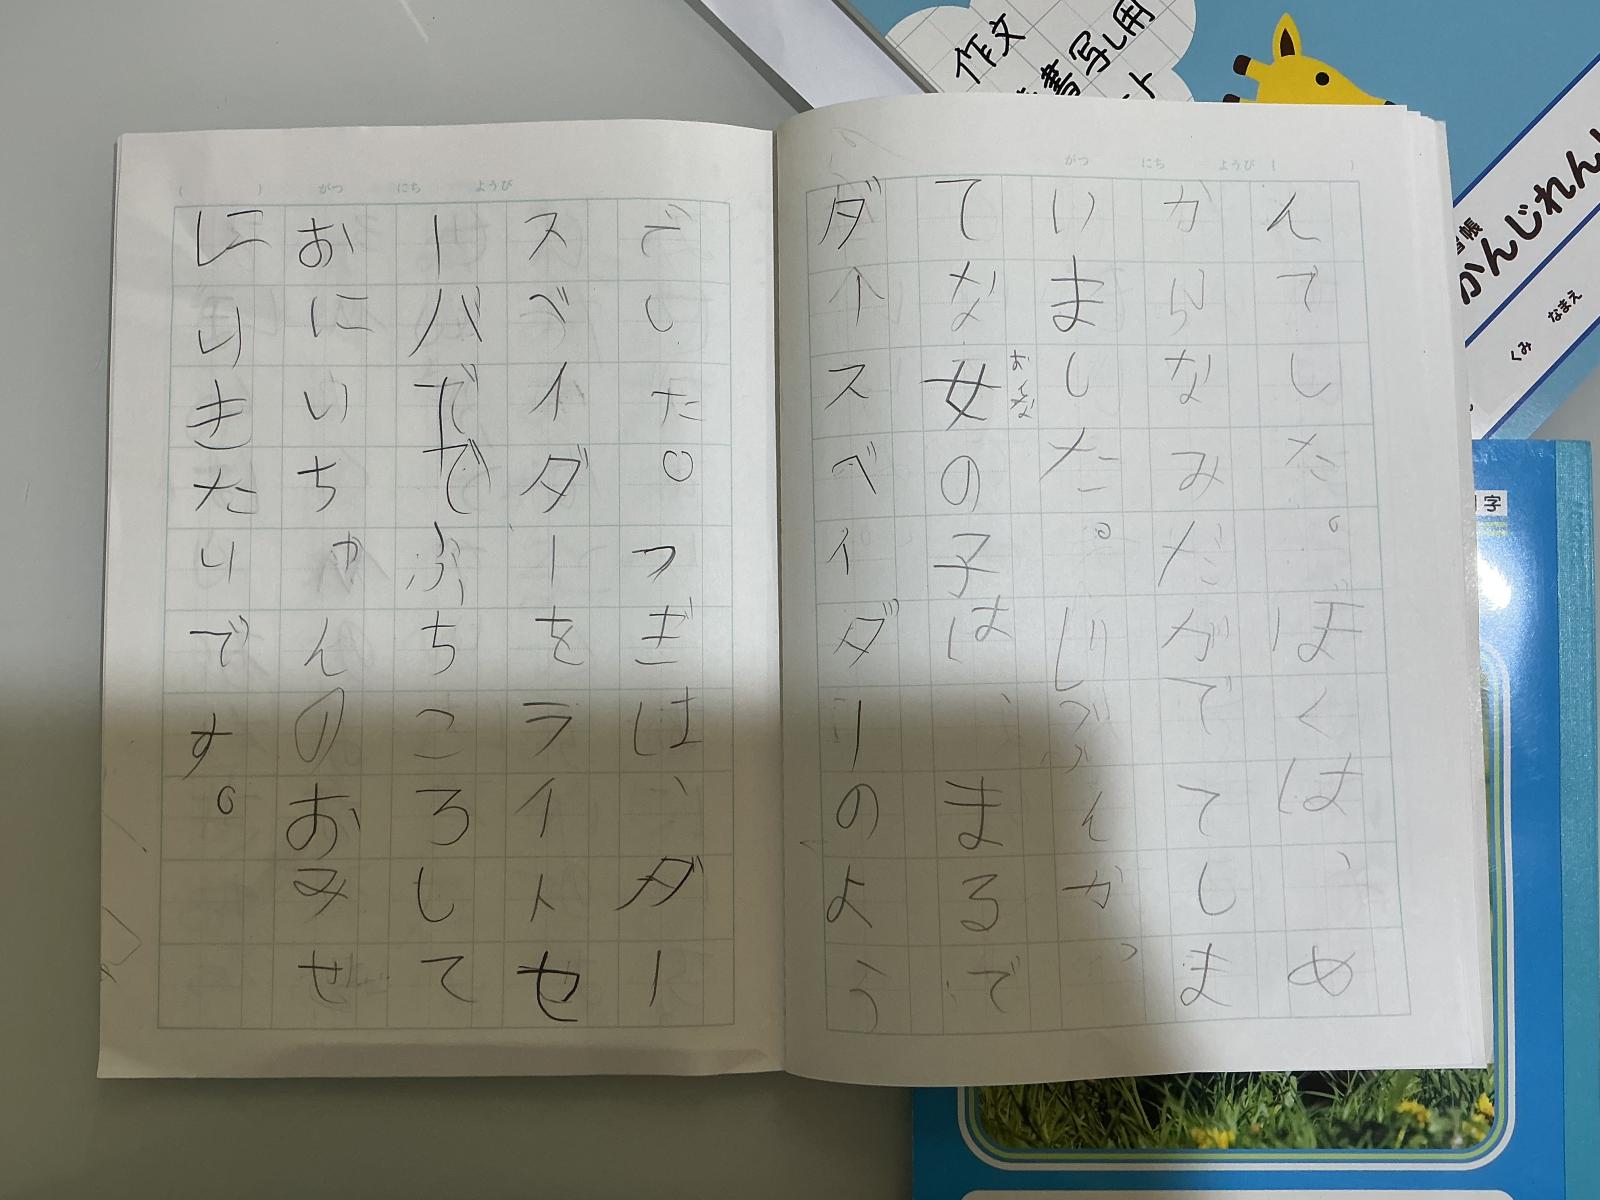 がつ にち ようび ( )
んでした。ぼくは、め
からなみだがでてしま
いました。じぶんかっ
てな女の子は、まるで
おんな
ダースベイダーのよう
( ) がつ にち ようび
でした。つぎは、ダー
スベイダーをライトセ
ーバででぶちころして
おにいちゃんのおみせ
にいきたいです。
作文
書写し用
ト
帳
かんじれん
くみ なまえ
字